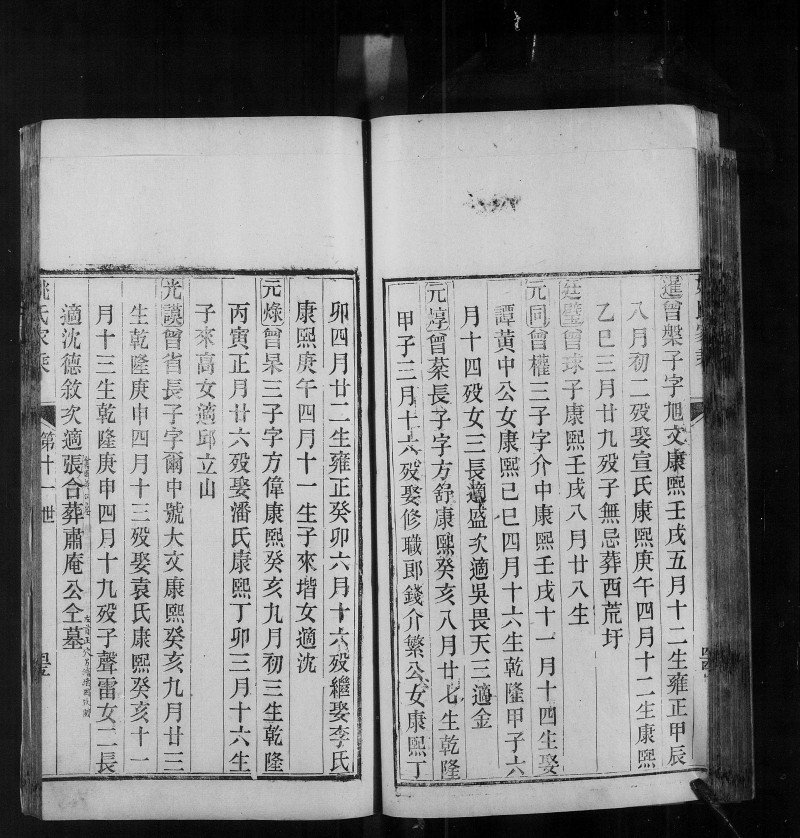 暹曾槃子字旭文康熙壬戌五月十二生雍正甲辰
八月初二歿娶宣氏康熙庚午四月十二生康熙
乙巳三月廿九歿子無忌葬西荒圩
廷璧曾球子康熙壬戌八月廿八生
元同曾權三子字介中康熙壬戌十一月十四生娶
譚黃中公女康熙己巳四月十六生乾隆甲子六
月十四歿女三長適盛次適吳畏天三適金
元焞曾蓁長子字方舒康熙癸亥八月廿七生乾隆
甲子三月十六歿娶修職郎錢介繁公女康熙丁
卯四月廿二生雍正癸卯六月十六歿繼娶李氏
康熙庚午四月十一生子來堦女適沈
元燦曾杲三子字方偉康熙癸亥九月初三生乾隆
丙寅正月廿六歿娶潘氏康熙丁卯三月十六生
子來高女適邱立山
光謨曾省長子字爾申號大文康熙癸亥九月廿三
生乾隆庚申四月十三歿娶袁氏康熙癸亥十一
月十三生乾隆庚申四月十九歿子聲雷女二長
適沈德敘次適張合葬肅庵公仝墓
姚氏家乘
第十一世